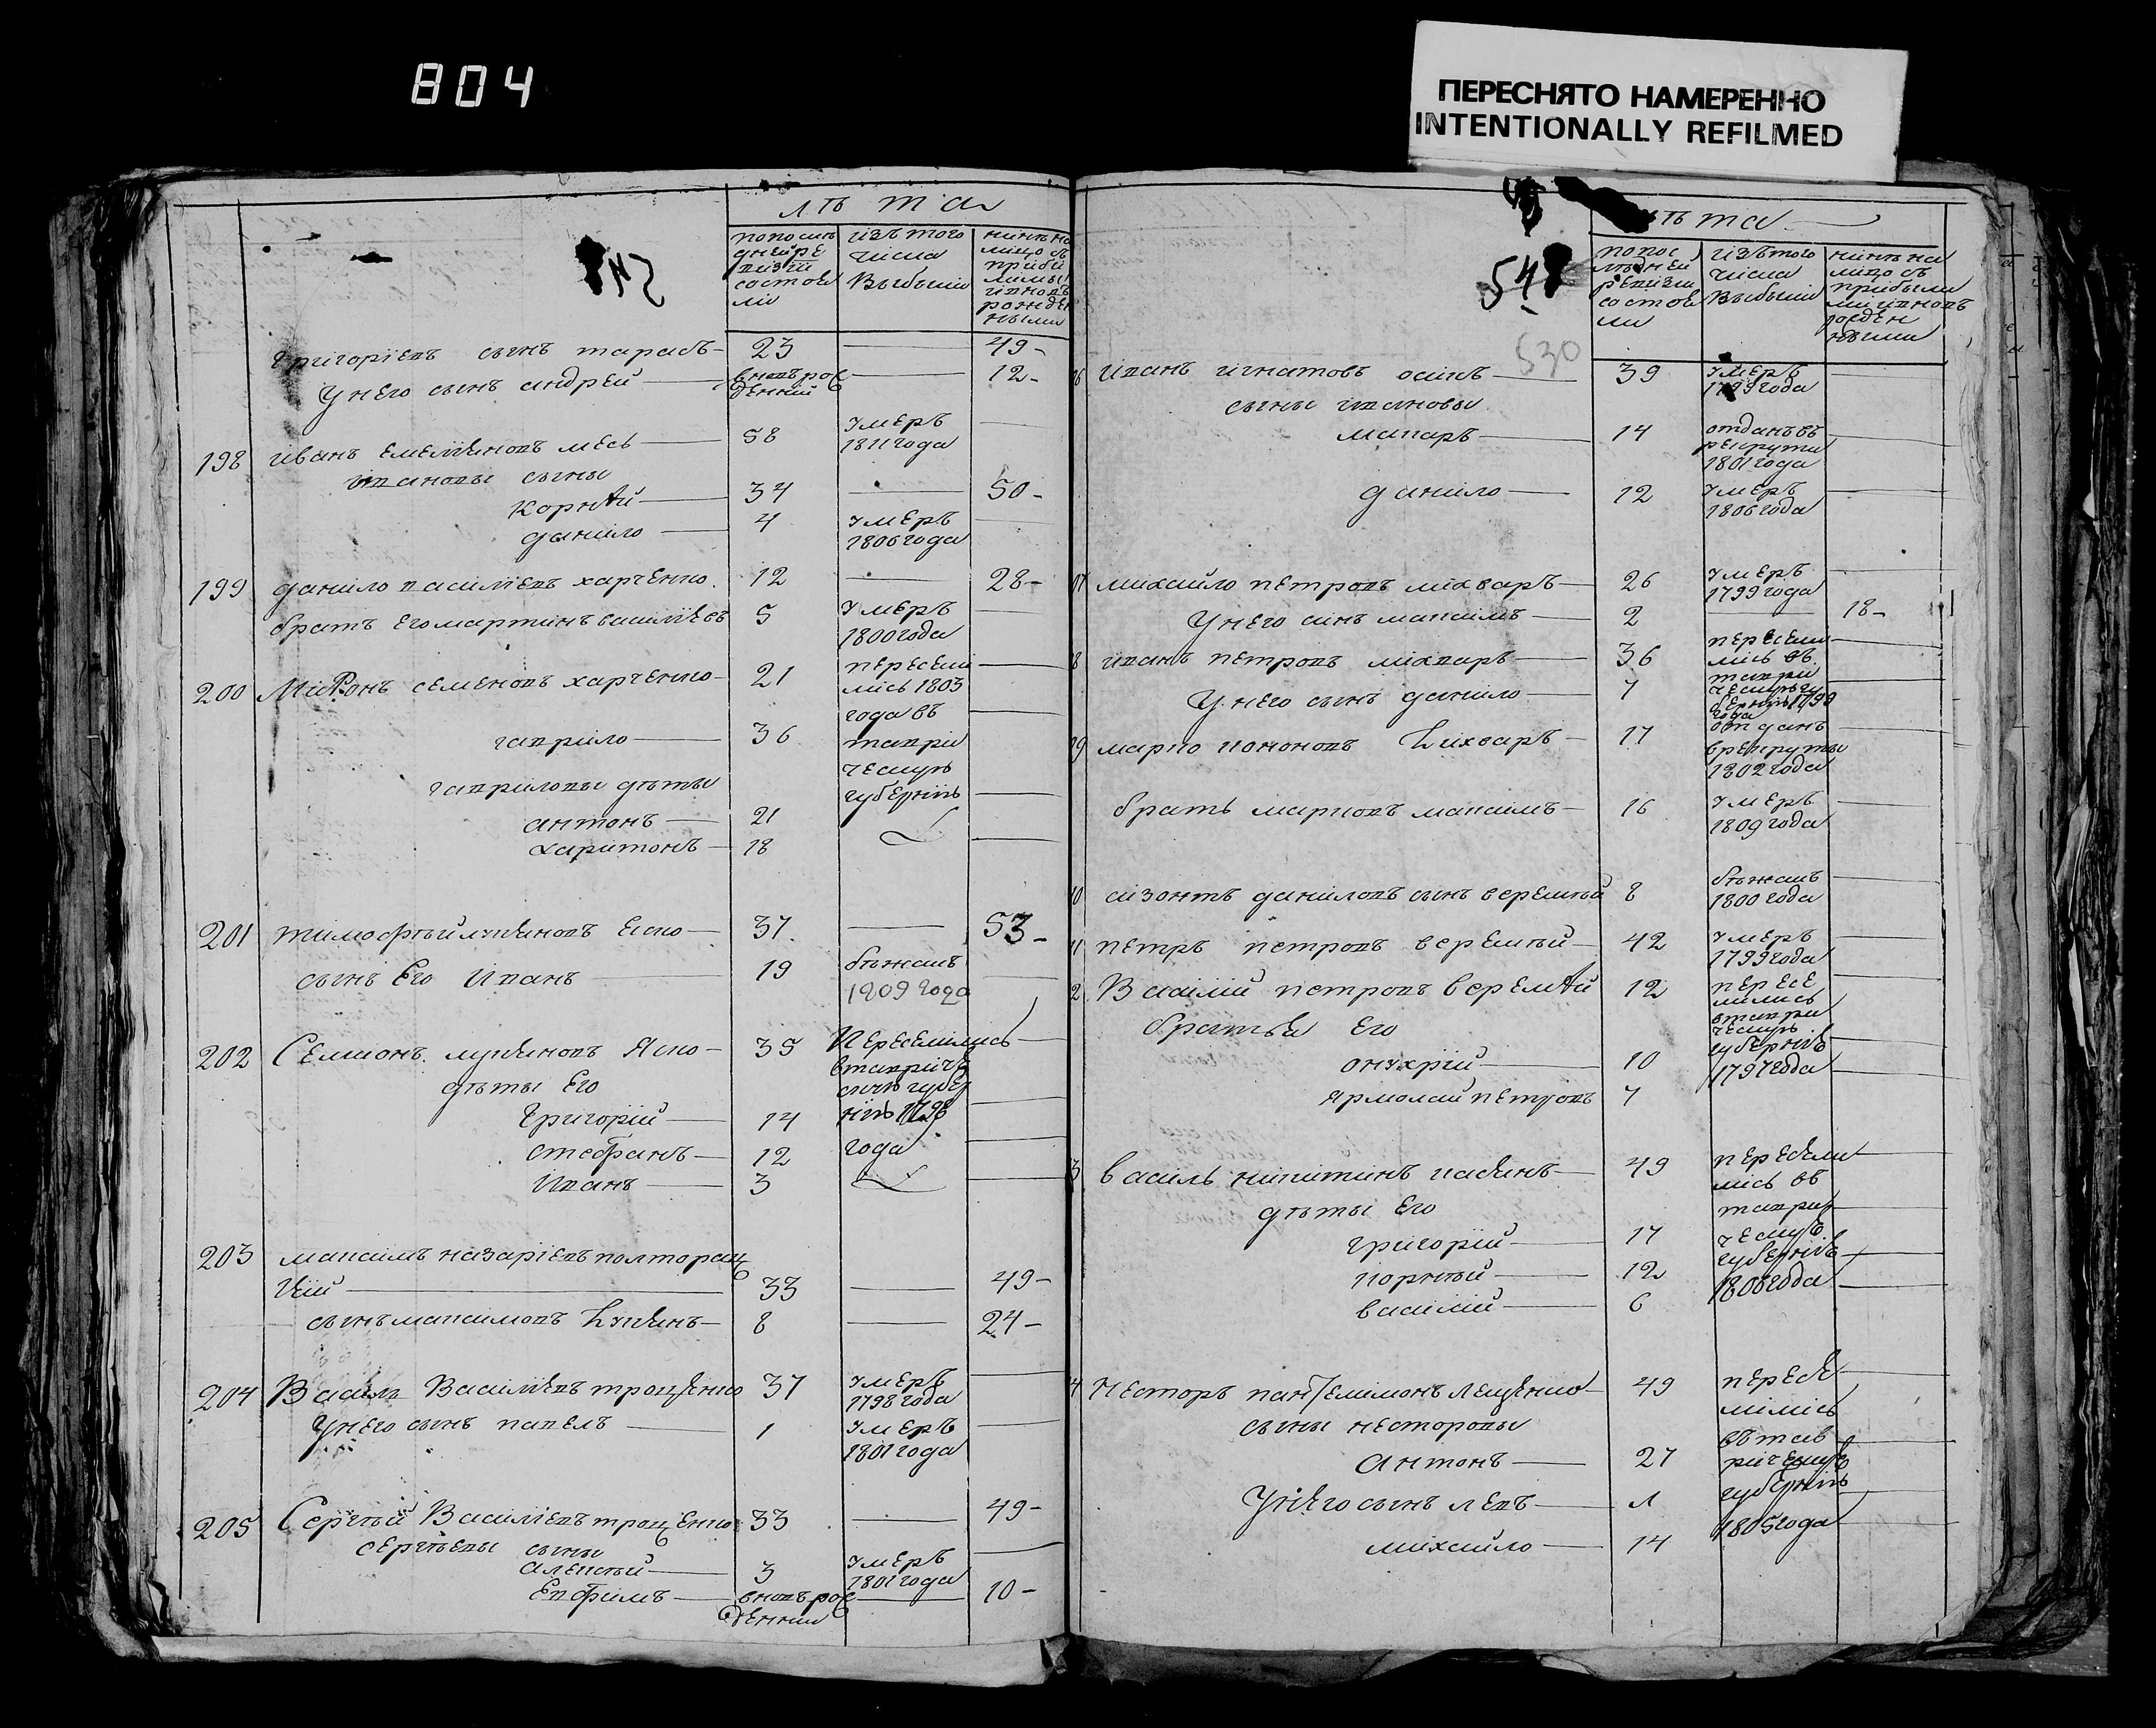 804
ПЕРЕСНЯТО НАМЕРЕННО
INTENTIONALLY REFILMED
лѣта
изъ того числа выбыли
Григориевъ сынъ тарасъ 23 49
У него сынъ андрей вновь рожденний 12
198 иванъ емелияновъ 58 умеръ 1811 года
ивановы сыны
корнѣй 34 50
данило 4 умеръ 1806 года
199 данило василиевъ харченко 12 28
братъ его мартинъ василиевъ 5 умеръ 1800 года
200 Миронъ семеновъ харченко 21 переселились 1803 года въ таврическую губернию
гаврило 36
гавриловы дѣты
антонъ 21
харитонъ 18
201 тимофѣй лукяновъ 37 53
сынъ Его Иванъ 19 бѣжалъ 1809 года
202 Семионъ лукяновъ 35 Переселились в таврическую губернию 1798 года
дѣты Его
Григорій 14
стефанъ 12
Иванъ 3
203 максимъ назаріевъ полторацкий 33 49
сынъ максимовъ Лукянъ 8 24
204 Василь Василиевъ троценко 37 умеръ 1798 года
У него сынъ павелъ 1 умеръ 1801 года
205 Сергѣй Василиевъ троценко 33 49
сергѣевы сыны
алексѣй 3 умеръ 1801 года
Евфимъ вновь рожденний 10
лѣта
548
530
по последней ревизии состояли
изъ того числа выбыли
ныне на лицо съ прибылими и вновь рожденными
6 иванъ игнатовъ 39 умеръ 1799 года
сыны ивановы
макаръ 14 отданъ въ рекруты 1801 года
данило 12 умеръ 1806 года
7 михайло петровъ лихваръ 26 умеръ 1799 года
У него синъ максимъ 2 18
8 иванъ петровъ лихваръ 36 переселились въ таврическую губернию 1799 года
У него сынъ данило 7
9 марко кононовъ Лихваръ 17 отданъ в рекруты 1802 года
братъ марковъ максимъ 16 умеръ 1809 года
10 сизонтъ даниловъ сынъ веремѣй 8 бѣжалъ 1800 года
11 петръ петровъ веремѣй 42 умеръ 1799 года
2 Василий петровъ веремѣй 12 переселились в таврическую губернию 1797 года
братья Его
онухрій 10
ярмолай петровъ 7
3 василь никитинъ 49 переселились въ таврическую губернию 1806 года
дѣты Его
григорій 17
корнѣй 12
василий 6
4 Несторъ пантелимонъ лещенко 49 переселились въ таврическую губернию 1805 года
сыны несторовы
антонъ 27
У него сынъ левъ
михайло 14